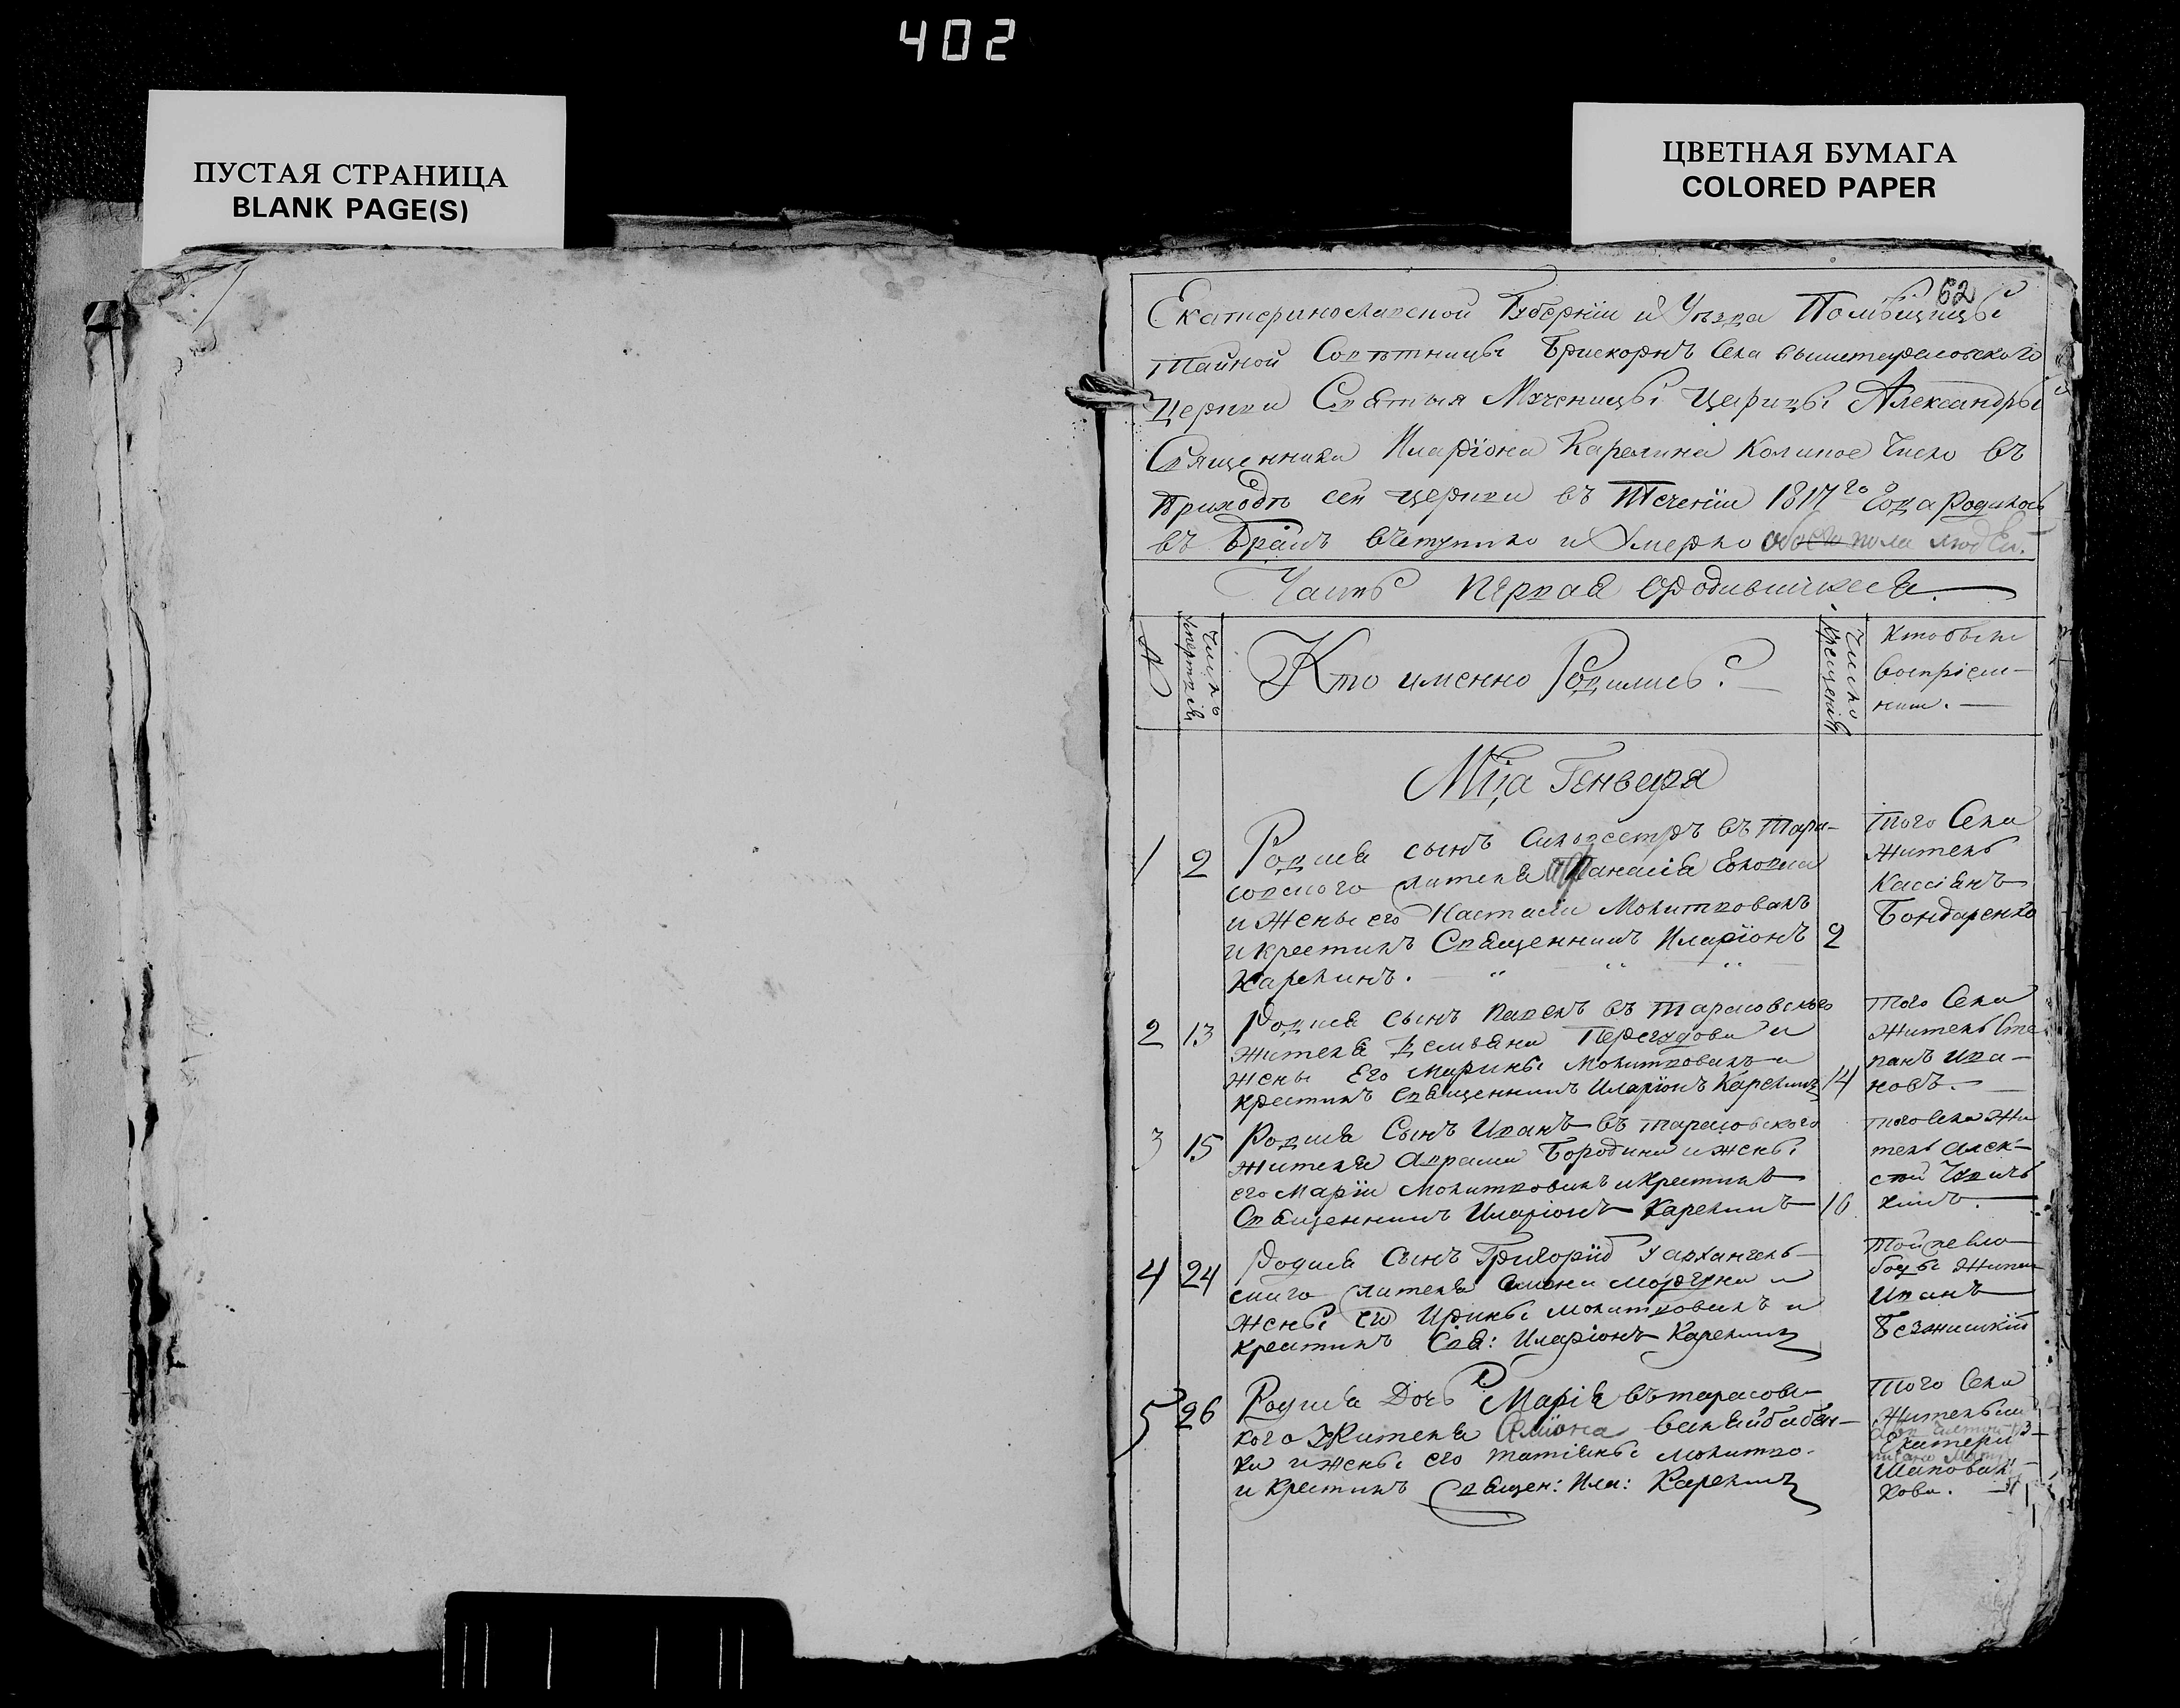 402
ПУСТАЯ СТРАНИЦА
BLANK PAGE(S)
ЦВЕТНАЯ БУМАГА
COLORED PAPER
62
Екатеринославской Губерніи и Уѣзда Помѣщицы
Тайной Совѣтницы Брискорнъ Села вышетарасовского
Церкви Святыя Мученицы Царицы Александры
Священника Иларіона Карелина Коликое Число въ
Приходѣ сей церкви въ Теченіи 1817го Года родилось
въ Бракъ вступило и Умерло обоего пола людей.
Часть первая ородившихся
№
Число
Кто именно Родились?
Число крещенія
Кто были
воспріем-
ники.
Мца Генваря
1
2
Родися сынъ Сильвестръ въ Тара-
совского жителя Афанасія
и Жены его Настасіи Молитвовалъ
и крестилъ Священникъ Иларіонъ
Карелинъ.
2
Того Села
Житель
Кассіянъ
Бондаренко
2
13
Родися сынъ Павелъ въ Тарасовского
жителя Демьяна Перегудова и
жены Его Марины Молитвовалъ и
крестилъ Священникъ Иларіонъ Карелинъ
14
Того Села
Житель Сте
панъ Ива-
новъ.
3
15
Родися Сынъ Иванъ въ тарасовского
жителя Аврама Бородина и жены
его Маріи молитвовалъ и крестилъ
Священникъ Иларіонъ Карелинъ
16
того Села Жи
тель Алек-
сей
4
24
Родися Сынъ Григорій У архангель-
ского жителя Семена и
жены его Ирины молитвовалъ и
крестилъ Свя: Иларіонъ Карелинъ
Той же Сло-
боды Житель
Иванъ
5
26
Родися Дочь Марія въ тарасовс-
кого Жителя
ки и Жены его татіяны молитво.
и крестилъ Священ: Ила: Карелинъ
Того Села
Екатери
Шаповал
кова.